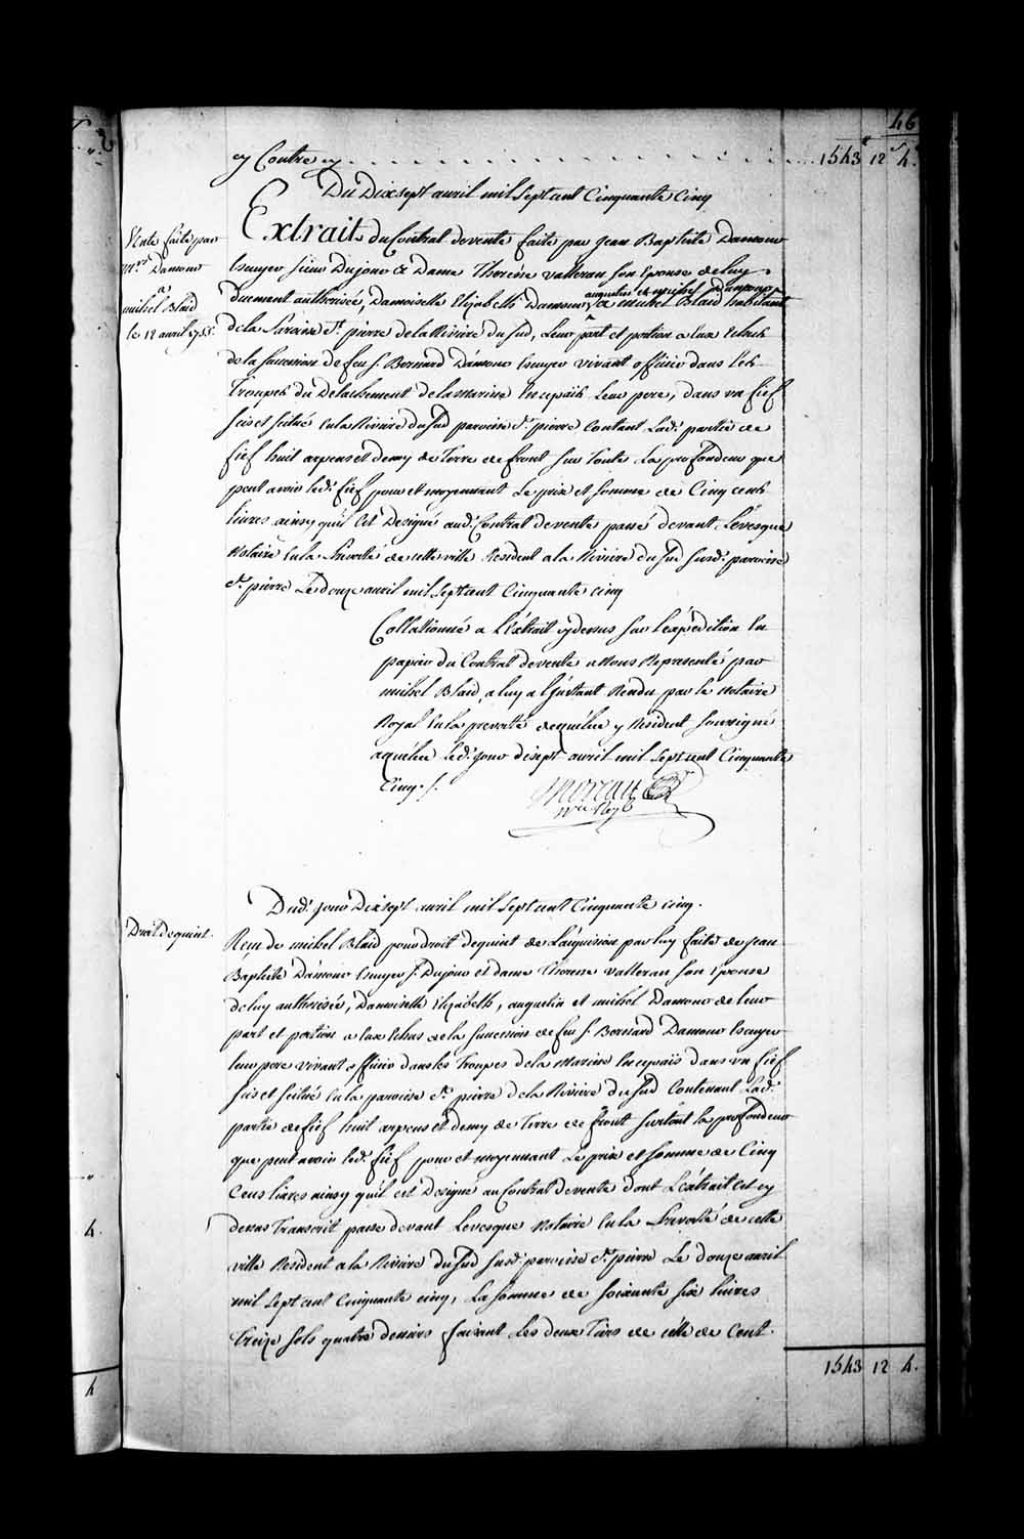 46
cy Contre cy . . . . . . . . . . . . . . . 1543 12 4.
Du Dixsept avril mil Sept cent Cinquante Cinq
Vente faite par
Mrs. Damour
a
michel Blaid
le 12 avril 1755.
Extrait du Contrat de vente faite par Jean Baptiste Damour
Escuyer Sieur Dujour et Dame Therese valleran son Epouse de luy
augustin et michel Damour
duement authorisée, Damoiselle Elizabeth Damour, a michel Blaid habitant
de la Paroisse St. pierre de la Riviere du Sud, Leur part et portion a Eux Echus
de la succession de feu S. Bernard Damour Escuyer vivant officier dans les
Troupes du Detachement de la marine En ce païs Leur pere, dans un fief
sis et scitué En la Riviere du Sud paroisse St. pierre Contant. Lad. partie de
fief huit arpens et demy de Terre de front sur Toute La profondeur que
peut avoir led. fief pour et moyennant Le prix et somme de Cinq cents
livres ainsy qu'il Est Designé aud. Contrat de vente passé devant Levesque
Notaire En la Prevosté de cette ville Resident a la Riviere du Sud susd. paroisse
St. pierre Le douze avril mil Sept cent Cinquante cinq
Collationné a L'Extrait cy dessus sur l'expedition En
papier du Contrat de vente a Nous Representé par
michel Blaid, a luy a l'instant Rendu par le Notaire
Royal En la prevosté de quebec y Resident soussigné
a quebec led. jour dixsept avril mil Sept cent Cinquante
Cinq ./.
Moreau
Nre. Roy.
Dud. jour Dixsept avril mil Sept cent Cinquante cinq.
Droit de quint.
Reçu de michel Blaid pour droit de quint de L'aquision par luy faite de Jean
Baptiste Damour Escuyer S. Dujour et dame Therese valleran son Epouse
de luy authorisée, Damoiselle Elizabeth, augustin et michel Damour de leur
part et portion a Eux Echus de la succession de feu S. Bernard Damour Escuyer
leur pere vivant officier dans les Troupes de la Marine En ce païs dans un fief
sis et scitué En la paroisse St. pierre de la Riviere du Sud Contenant Lad.
partie de fief huit arpens et demy de Terre de front surtout la profondeur
que peut avoir led. fief pour et moyennant Le prix et somme de Cinq
Cens livres ainsy qu'il est Designé au Contrat de vente dont L'extrait est cy
dessus Transcrit passé devant Levesque Notaire En la Prevosté de cette
ville Resident a la Riviere du Sud susd. paroisse St. pierre Le douze avril
mil Sept cent Cinquante cinq, La somme de soixante six livres
Treize sols quatre deniers faisant Les deux Tiers de celle de Cent
1543 12 4.